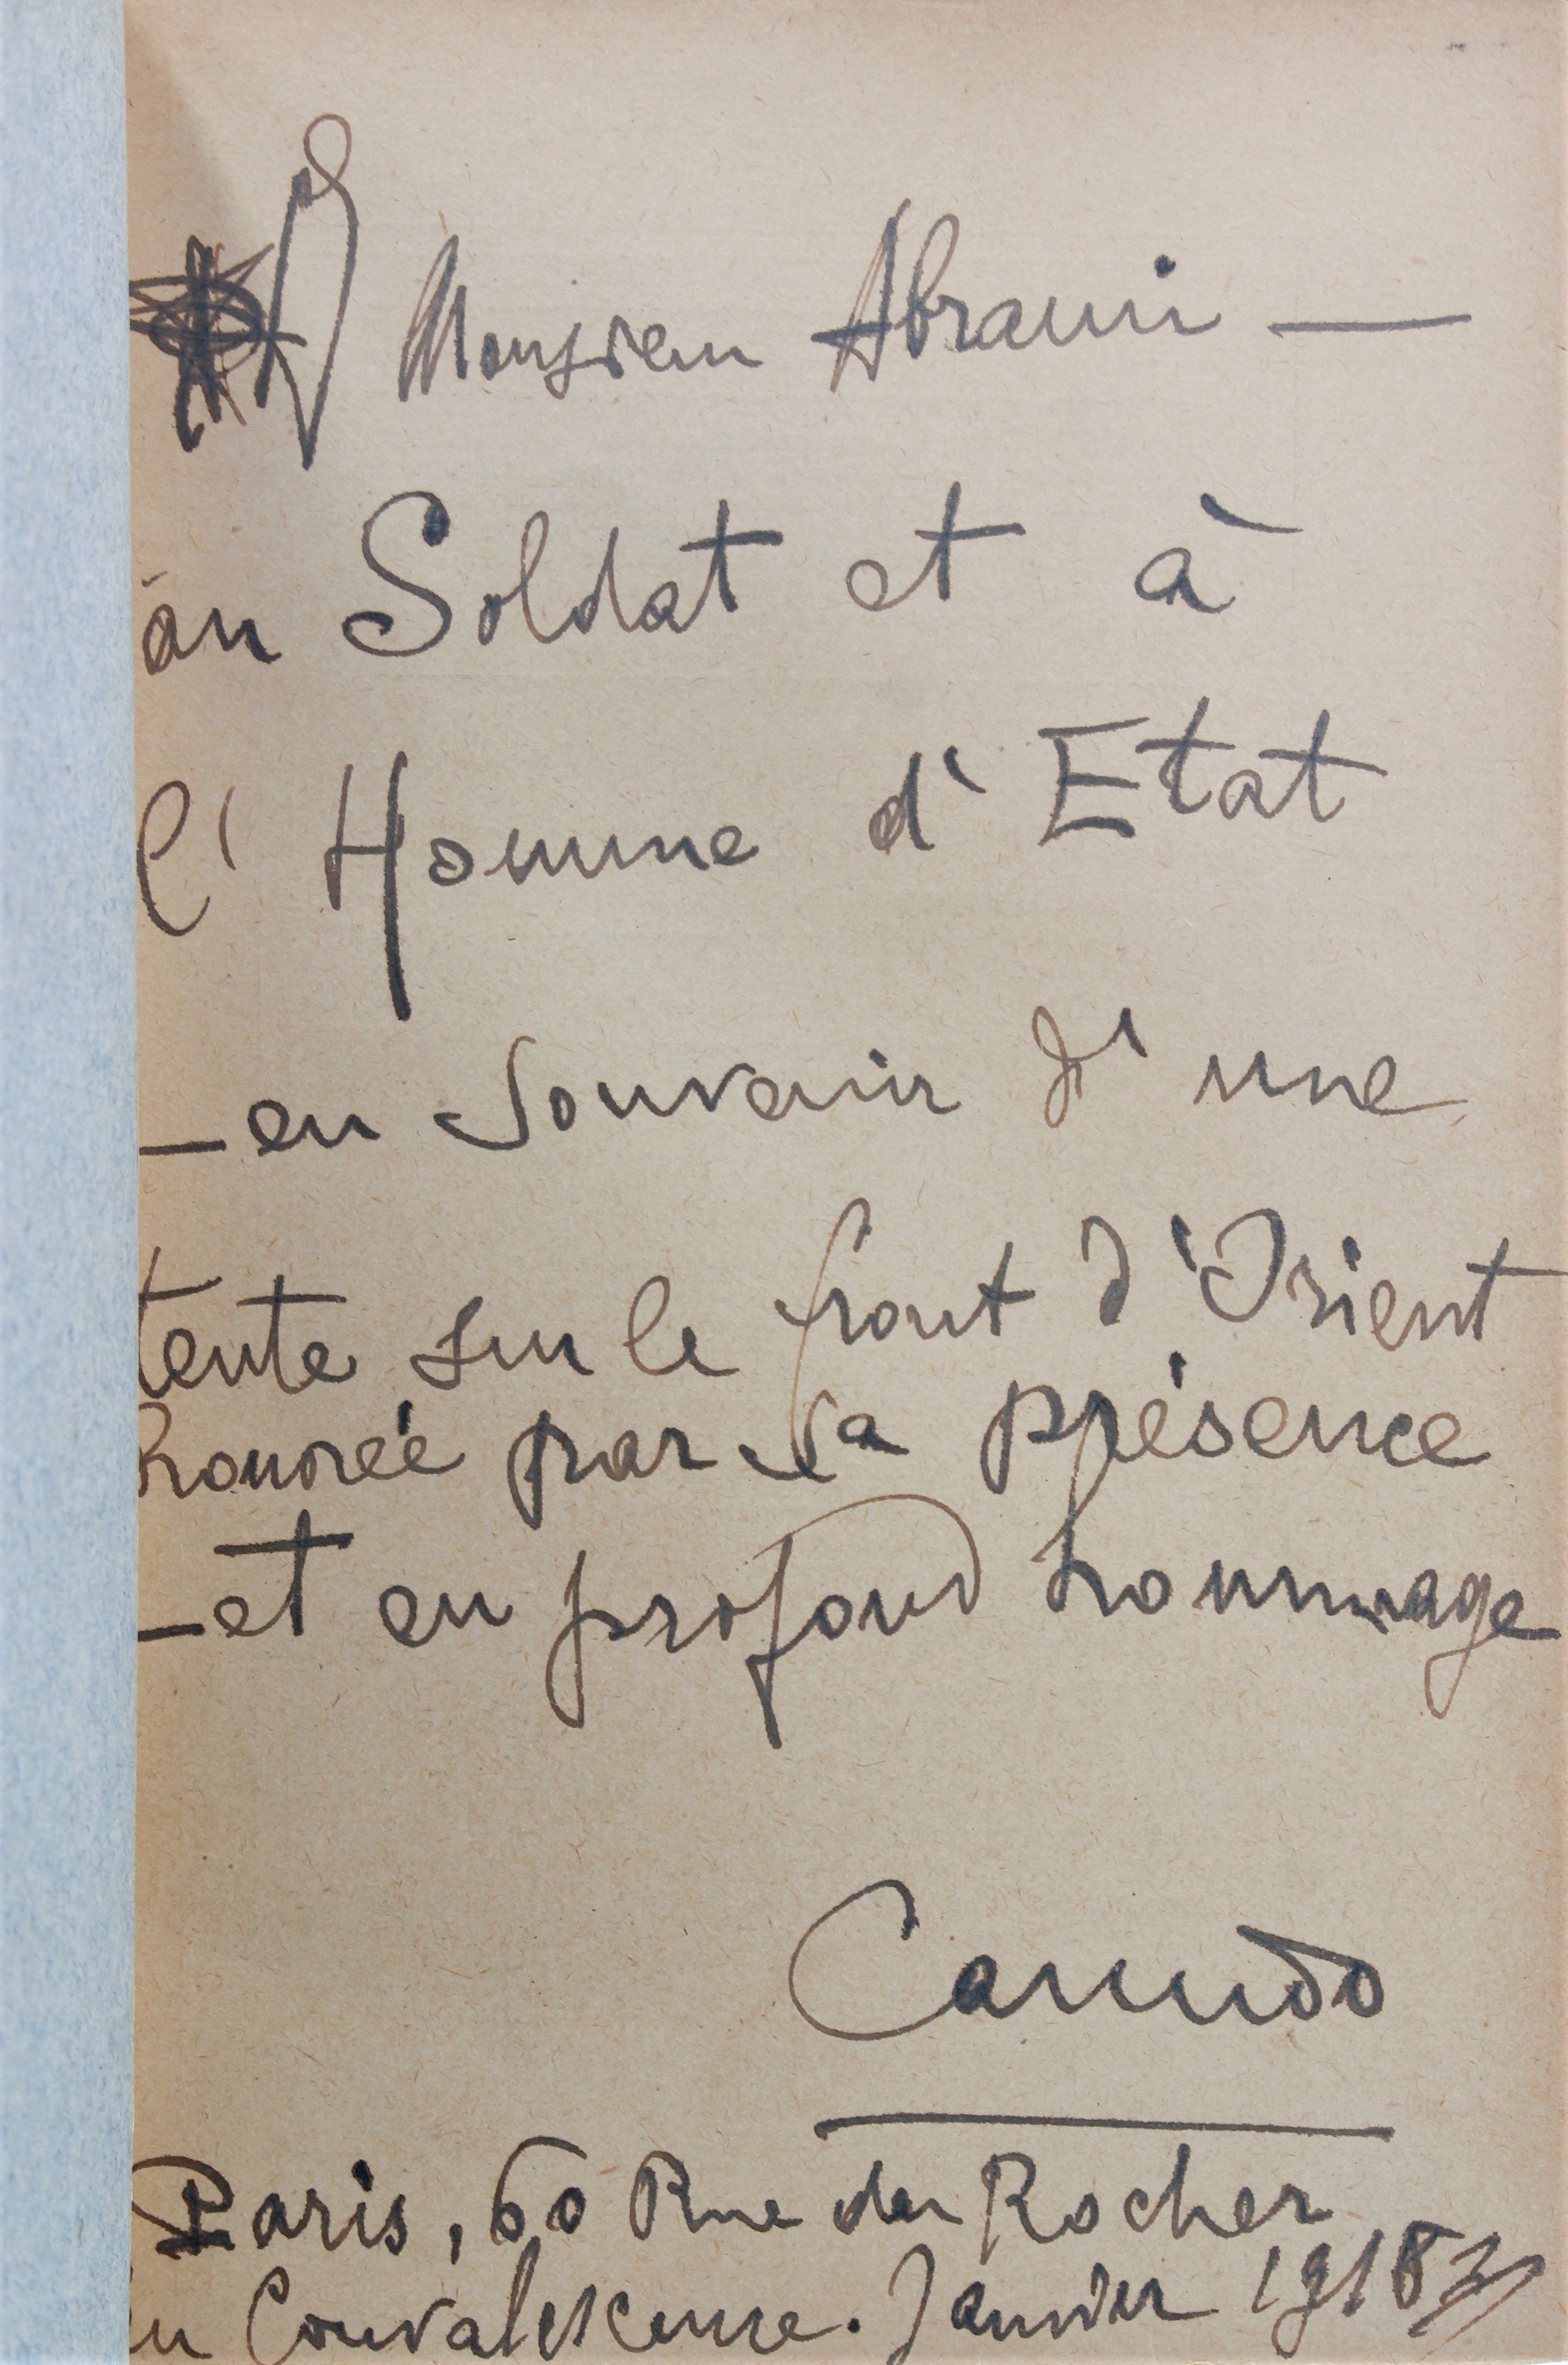 À Monsieur Abrami —
au Soldat et à
l'Homme d'Etat
— en souvenir d'une
tente sur le front d'Orient
honorée par sa présence
— et en profond hommage
Canudo
Paris, 60 Rue du Rocher
en Convalescence. Janvier 1918